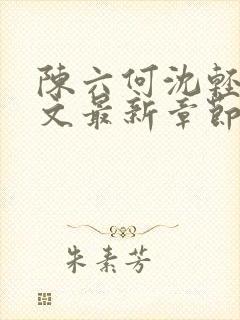 陳六何沈輕
文最新章節
朱素芳